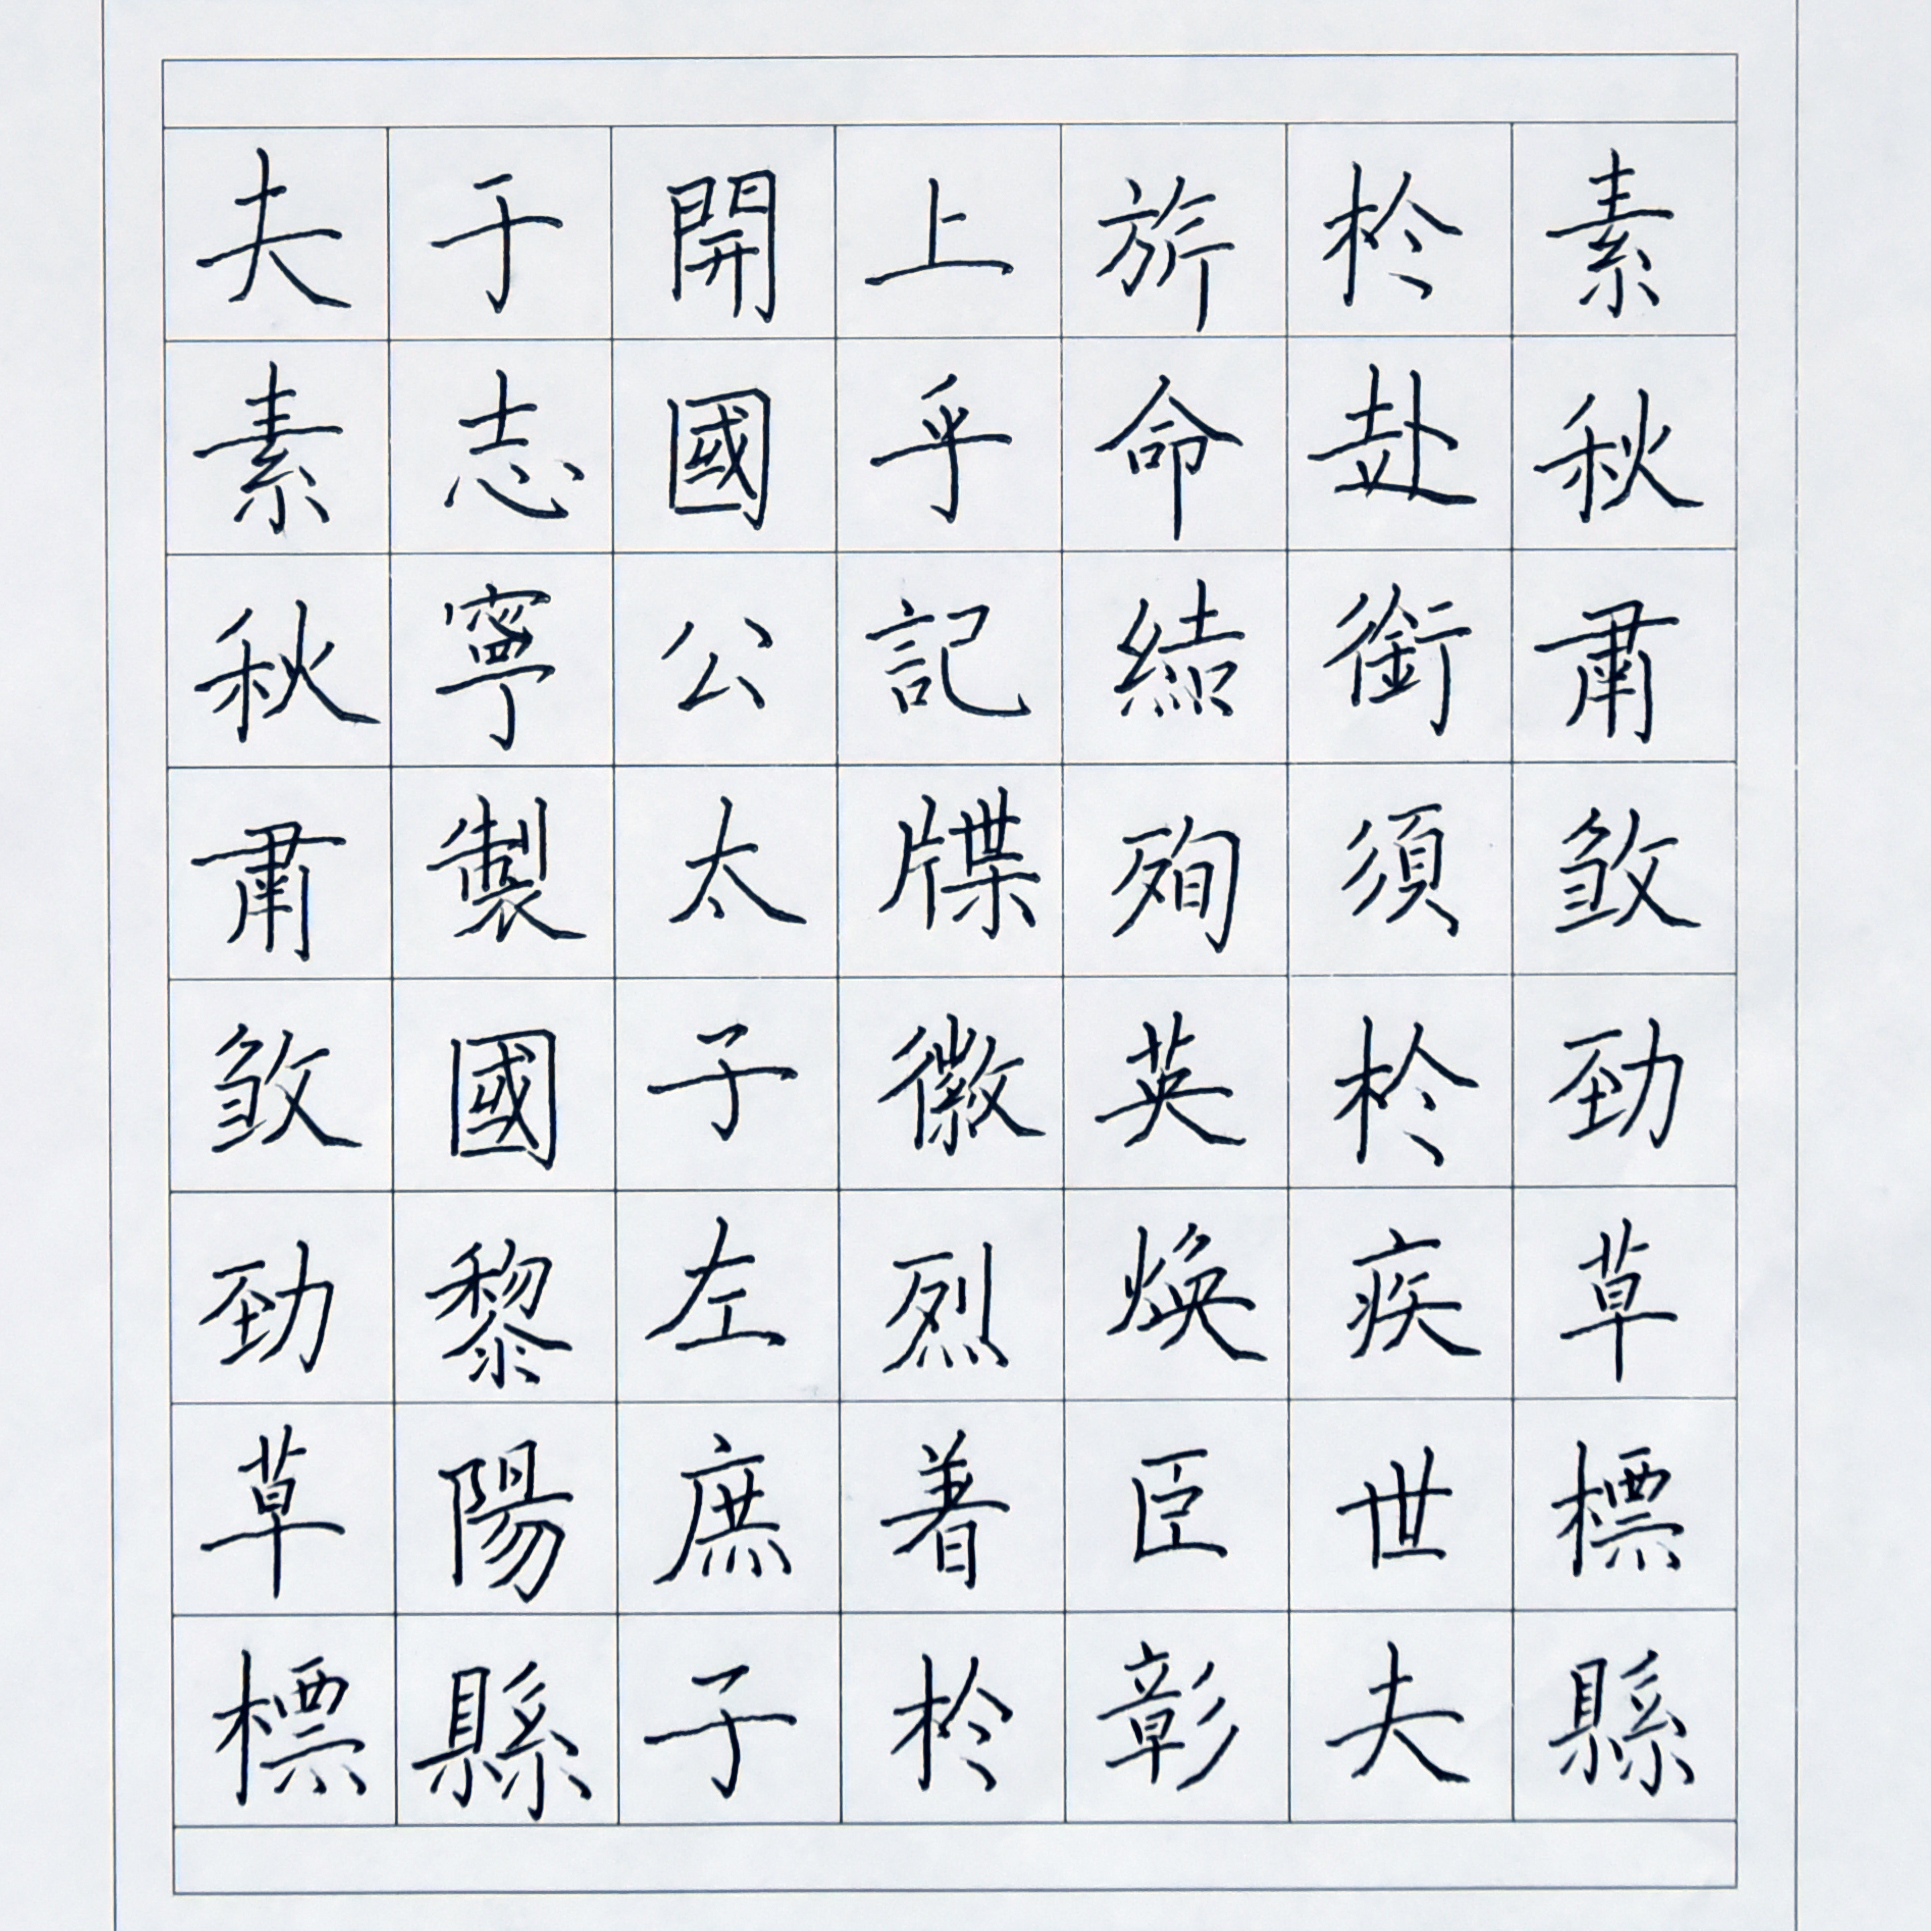 素秋肅煞勁草標縣
於赴銜須於疾世夫
旂命結殉英煥臣彰
上乎記牒徽烈著於
開國公太子左庶子
于志寧製國黎陽縣
夫素秋肅煞勁草標